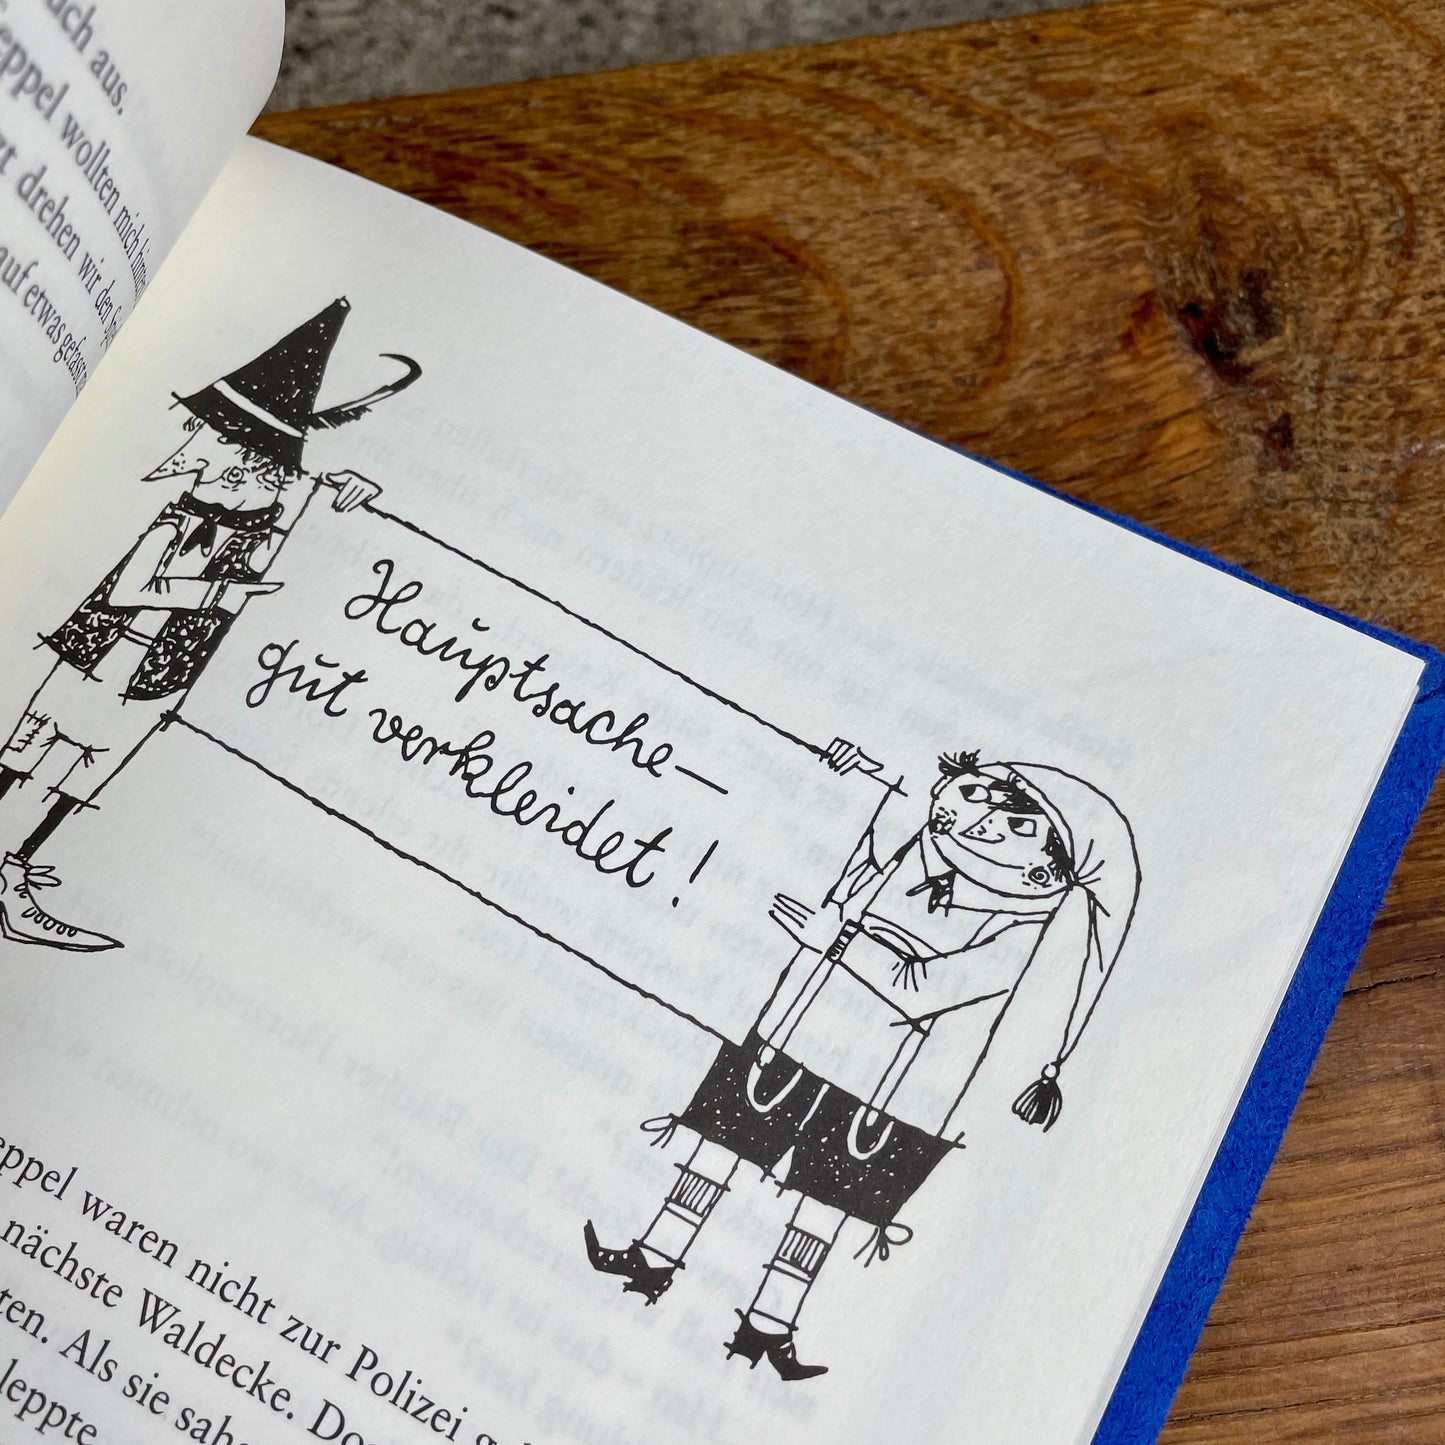 uch aus.
eppel wollten mich hinter
zt drehen wir den
auf etwas gefasst
Hauptsache –
gut verkleidet!
eppel waren nicht zur Polizei
nächste Waldecke. Do
ten. Als sie sahe
leppte